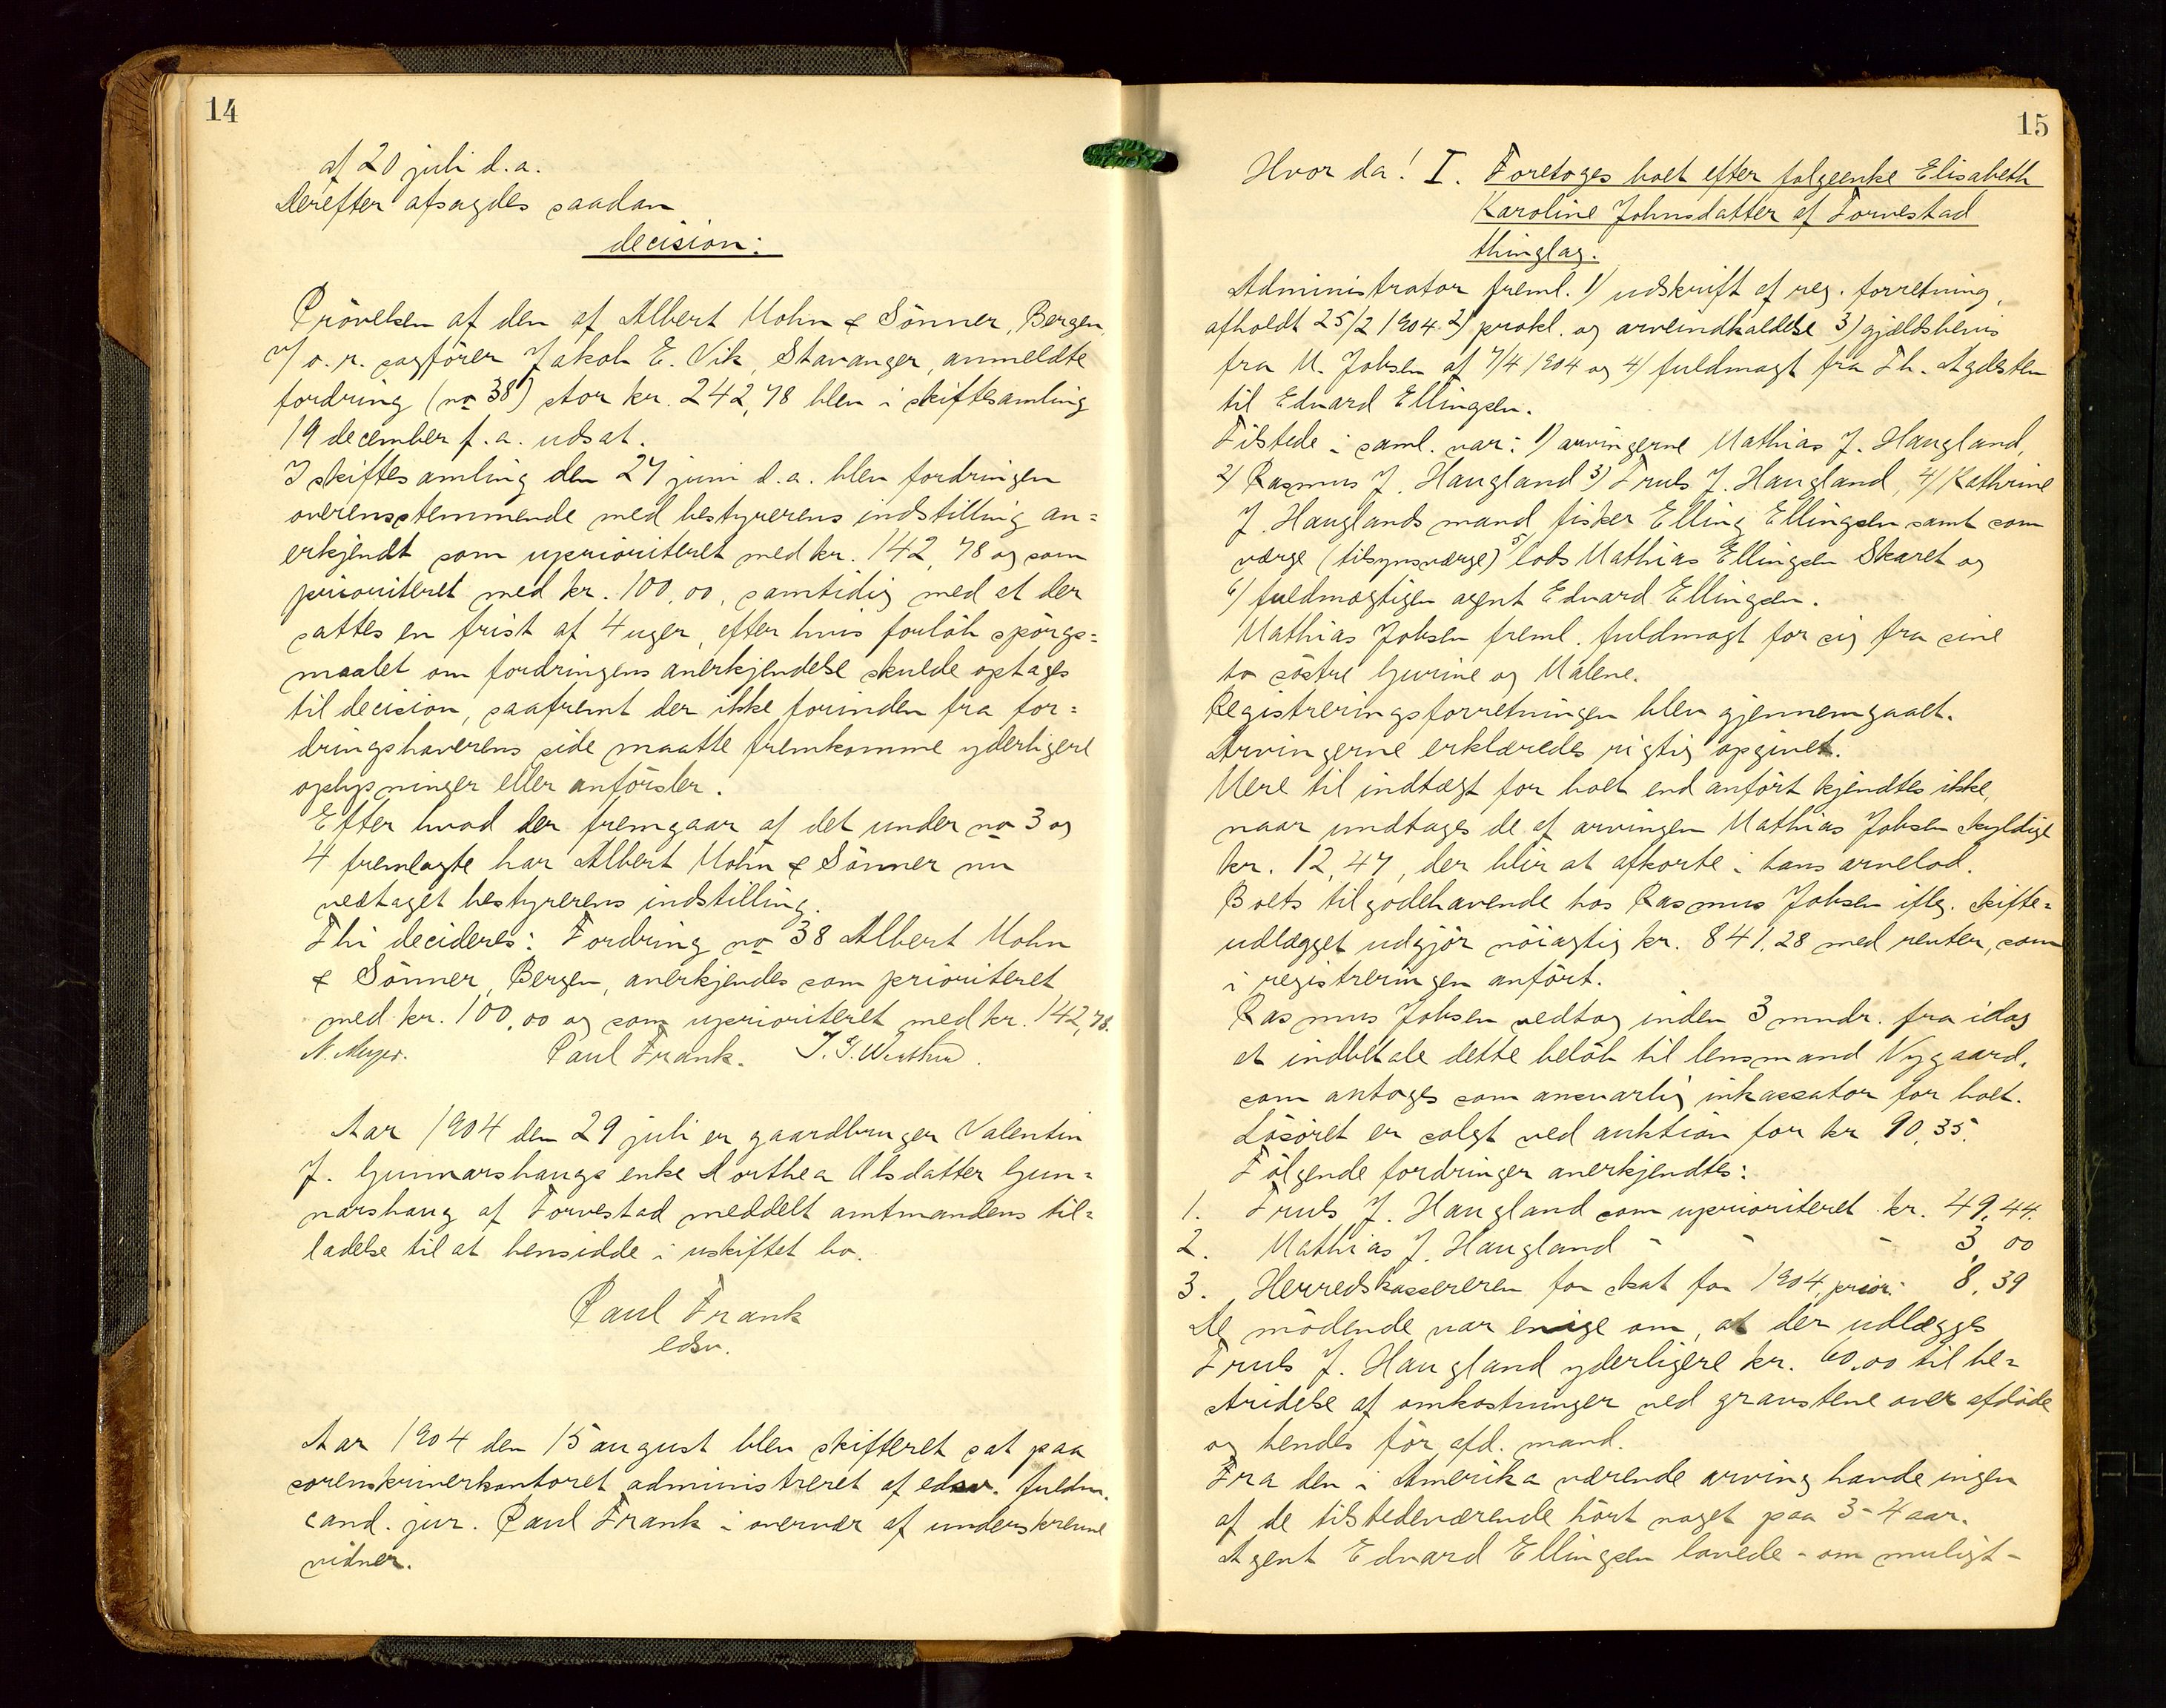 14
af 20 juli d.a.
Derefter afsagdes saadan
decision:
Prövelsen af den af Albert Mohn & Sönner, Bergen,
v/ o.r. sagförer Jakob E. Vik, Stavanger, anmeldte
fordring (no 38) stor kr. 242,78 blev i skiftesamling
19 december f.a. udsat.
I skiftesamling den 27 juni d.a. blev fordringen
overensstemmende med bestyrerens indstilling an=
erkjendt som uprioriteret med kr. 142,78 og som
prioriteret med kr. 100,00, samtidig med at der
sattes en frist af 4 uger, efter hvis forlöb spörgs=
maalet om fordringens anerkjendelse skulde optages
til decision, saafremt der ikke forinden fra for=
dringshaverens side maatte fremkomme yderligere
oplysninger eller anförsler.
Efter hvad der fremgaar af det under no 3 og
4 fremlagte har Albert Mohn & Sönner nu
vedtaget bestyrerens indstilling.
Thi decideres: Fordring no 38 Albert Mohn
& Sönner, Bergen, anerkjendes som prioriteret
med kr. 100,00 og som uprioriteret med kr. 142,78.
N. Meyer. Paul Frank.
Aar 1904 den 29 juli er gaardbruger Valentin
J. Gunnarshaugs enke Dorthea Olsdatter Gun=
narshaug af Torvestad meddelt amtmandens til=
ladelse til at hensidde i uskiftet bo.
Paul Frank
edsv.
Aar 1904 den 15 august blev skifteret sat paa
sorenskriverkontoret administreret af edsv. fuldm.
cand. jur. Paul Frank i overvær af underskrevne
vidner.
15
Hvor da! I. Foretoges boet efter folgeenke Elisabeth
Karoline Johnsdatter af Torvestad
thinglag.
Administrator freml. 1) udskrift af reg. forretning,
afholdt 25/2 1904 2) prokl. og arveindkaldelse 3) gjældsbevis
fra M. Jobsen af 7/4 1904 og 4) fuldmagt fra Th. Agdesten
til Edvard Ellingsen.
Tilstede i saml. var: 1) arvingerne Mathias J. Haugland,
2) Rasmus J. Haugland 3) Truls J. Haugland, 4) Kathrine
J. Hauglands mand fisker Elling Ellingsen samt som
værge (tilsynsværge) 5) lods Mathias Ellingsen Skaret og
6) fuldmægtigen agent Edvard Ellingsen.
Mathias Jobsen freml. fuldmagt for sig fra sine
to söstre Gurine og Malene.
Registreringsforretningen blev gjennemgaaet.
Arvingerne erklæredes rigtig opgivet.
Mere til indtægt for boet end anfört kjendtes ikke,
naar undtages de af arvingen Mathias Jobsen skyldige
kr. 12,47, der blir at afkorte i hans arvelod.
Boets tilgodehavende hos Rasmus Jobsen iflg. skifte=
udlægget udgjör nöiagtig kr. 841.28 med renter, som
i registreringen anfört.
Rasmus Jobsen vedtog inden 3 mndr. fra idag
at indbetale dette belöb til lensmand Nygaard,
som antoges som ansvarlig inkassator for boet.
Lösöret er solgt ved auktion for kr 90,35.
Fölgende fordringer anerkjendtes:
1. Truls J. Haugland som uprioriteret kr. 49,44.
2. Mathias J. Haugland - - - 3,00
3. Herredskassereren for skat for 1904, prior. 8,39
De mödende var enige om, at der udlægges
Truls J. Haugland yderligere kr. 60,00 til be=
stridelse af omkostninger ved gravstene over afdöde
og hendes för afd. mand.
Fra den i Amerika værende arving havde ingen
af de tilstedeværende hört noget paa 3-4 aar.
Agent Edvard Ellingsen lovede - om muligt -